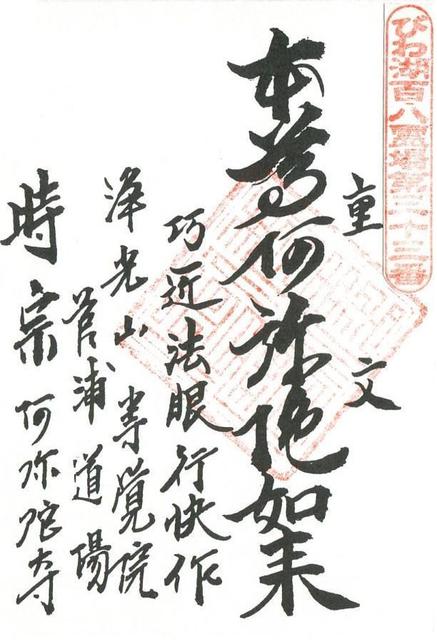 びわ湖百八霊場第十三番
重文
本尊阿弥陀如来
巧匠法眼行快作
浄光山
菅浦道場
時宗阿弥陀寺